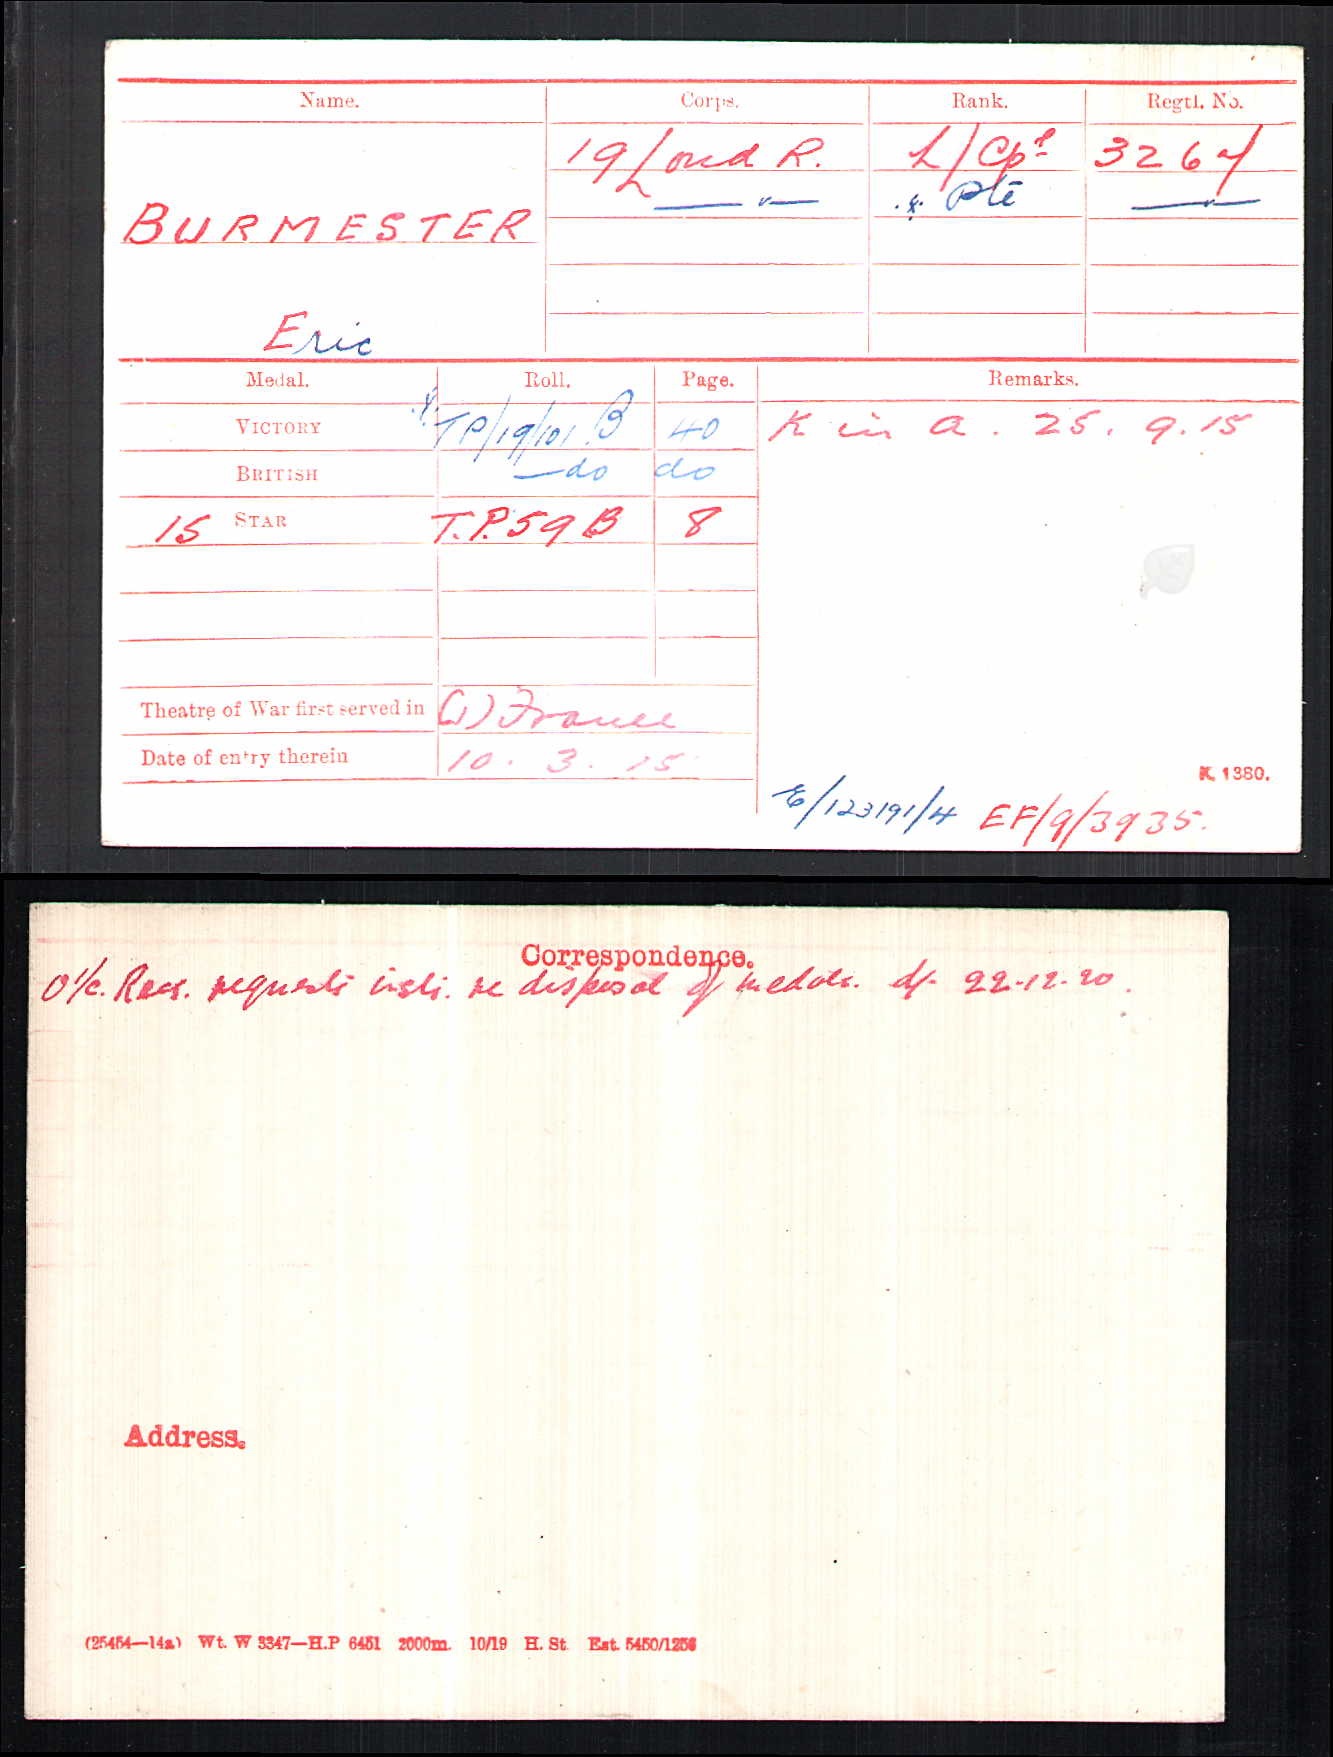 Name. Corps. Rank. Regtl. No.
19 Lond R. L/Cpl 3264
BURMESTER —〃— x Pte —〃—
Eric
Medal. Roll. Page. Remarks.
VICTORY x TP/19/101 B 40 K in a. 25. 9. 15
BRITISH —do do
15 STAR T.P. 59 B 8
Theatre of War first served in (1) France
Date of entry therein 10. 3. 15
K. 1380.
E/123191/4 EF/9/3935.
Correspondence.
O i/c. Recs. requests insts. re disposal of medals. d/- 22.12.20.
Address.
(25454—14a) Wt. W 3347—H.P 6451 2000m. 10/19 H. St. Est. 5450/1256